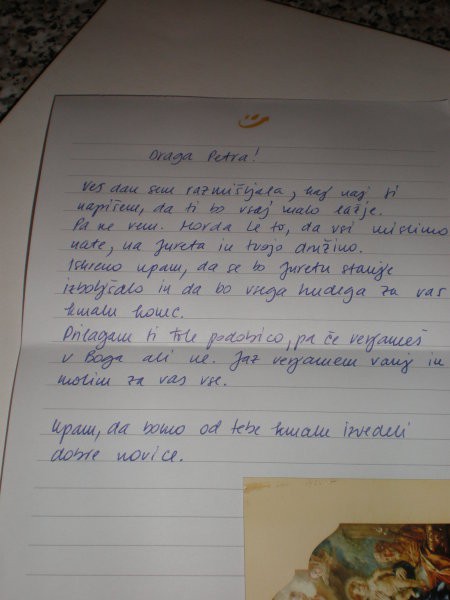 Draga Petra!
Ves dan sem razmišljala, kaj naj ti
napišem, da ti bo vsaj malo lažje.
Pa ne vem. Morda le to, da vsi mislimo
nate, na Jureta in tvojo družino.
Iskreno upam, da se bo Juretu stanje
izboljšalo in da bo vsega hudega za vas
kmalu konec.
Prilagam ti tole podobico, pa če verjameš
v Boga ali ne. Jaz verjamem vanj in
molim za vas vse.
Upam, da bomo od tebe kmalu izvedeli
dobre novice.